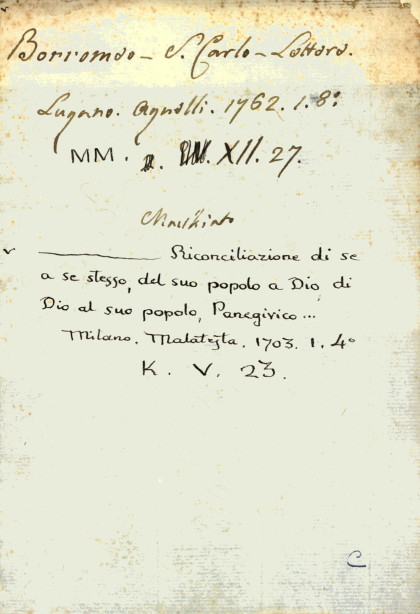 Borromeo - S. Carlo - Lettere.
Lugano. Agnelli. 1762. 1. 8º
MM. XII. 27.
Riconciliazione di se
a se stesso, del suo popolo a Dio di
Dio al suo popolo, Panegirico...
Milano. Malatesta. 1703. 1. 4º
K. V. 23.
C